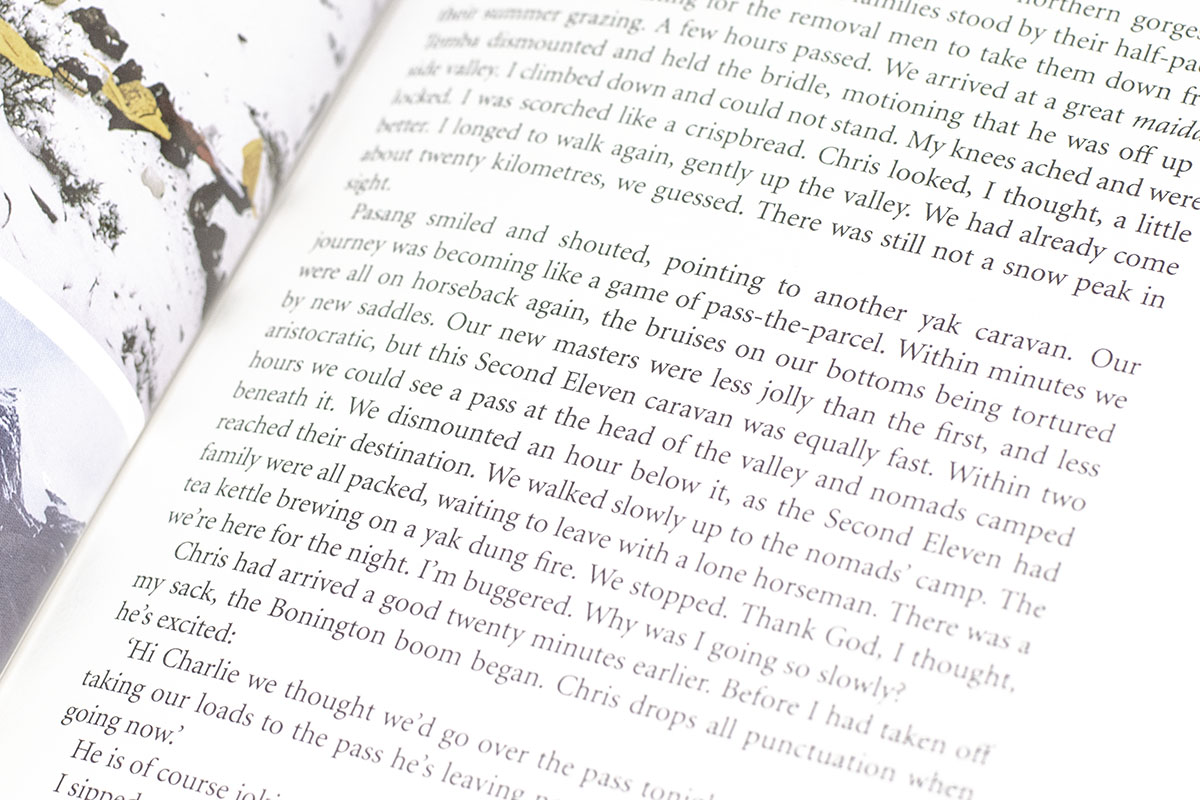 northern gorges
families stood by their half-pac
for the removal men to take them down fr
their summer grazing. A few hours passed. We arrived at a great maida
Tomba dismounted and held the bridle, motioning that he was off up
side valley. I climbed down and could not stand. My knees ached and were
locked. I was scorched like a crispbread. Chris looked, I thought, a little
better. I longed to walk again, gently up the valley. We had already come
about twenty kilometres, we guessed. There was still not a snow peak in
sight.
Pasang smiled and shouted, pointing to another yak caravan. Our
journey was becoming like a game of pass-the-parcel. Within minutes we
were all on horseback again, the bruises on our bottoms being tortured
by new saddles. Our new masters were less jolly than the first, and less
aristocratic, but this Second Eleven caravan was equally fast. Within two
hours we could see a pass at the head of the valley and nomads camped
beneath it. We dismounted an hour below it, as the Second Eleven had
reached their destination. We walked slowly up to the nomads’ camp. The
family were all packed, waiting to leave with a lone horseman. There was a
tea kettle brewing on a yak dung fire. We stopped. Thank God, I thought,
we’re here for the night. I’m buggered. Why was I going so slowly?
Chris had arrived a good twenty minutes earlier. Before I had taken off
my sack, the Bonington boom began. Chris drops all punctuation when
he’s excited:
‘Hi Charlie we thought we’d go over the pass tonig
taking our loads to the pass he’s leaving
going now.’
He is of course joki
I sipped